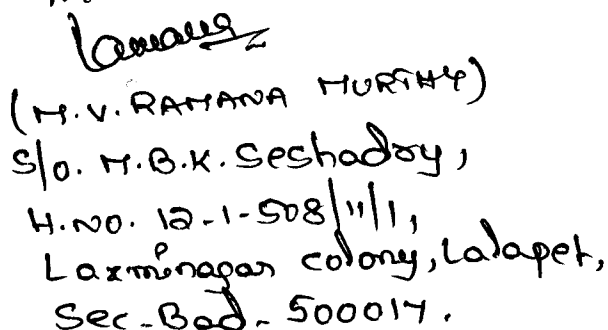 Ramana
(M.V. RAMANA MURTHY)
S/o. M.B.K. Seshadry,
H.NO. 12-1-508/11/1,
Laxminagar colony, Lalapet,
Sec-Bad-500017.